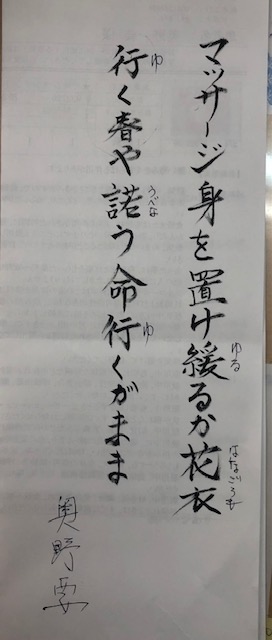 マッサージ身を置け緩るか花衣
ゆる
はなごろも
行く春や諾う命行くがまま
ゆ
うべな
ゆ
奥野要